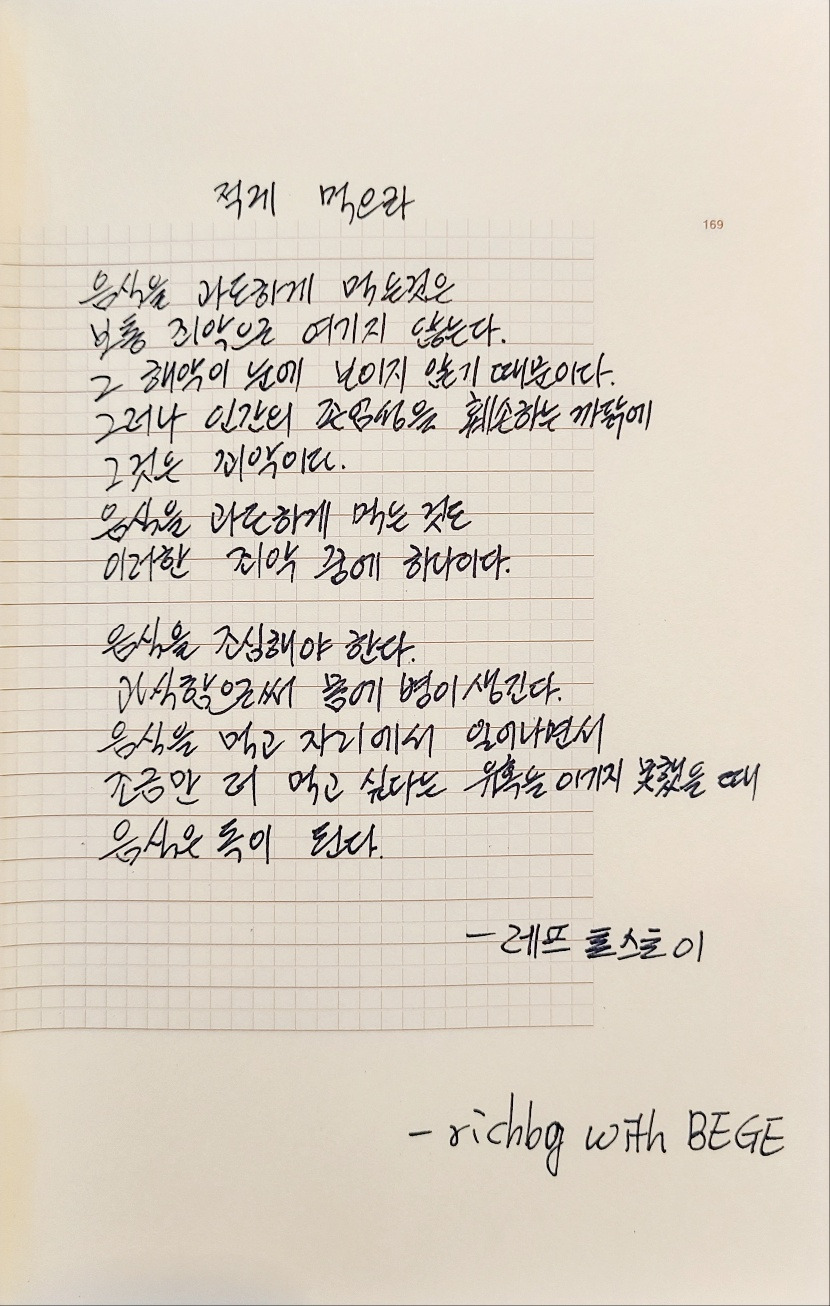 적게 먹으라
169
음식을 과도하게 먹는것은
보통 죄악으로 여기지 않는다.
그 해악이 눈에 보이지 않기 때문이다.
그러나 인간의 존엄성을 훼손하는 까닭에
그것은 죄악이다.
음식을 과도하게 먹는 것도
이러한 죄악 중에 하나이다.
음식을 조심해야 한다.
과식함으로써 몸에 병이 생긴다.
음식을 먹고 자리에서 일어나면서
조금만 더 먹고 싶다는 유혹을 이기지 못했을 때
음식은 독이 된다.
- 레프 톨스토이
- richbg with BEGE